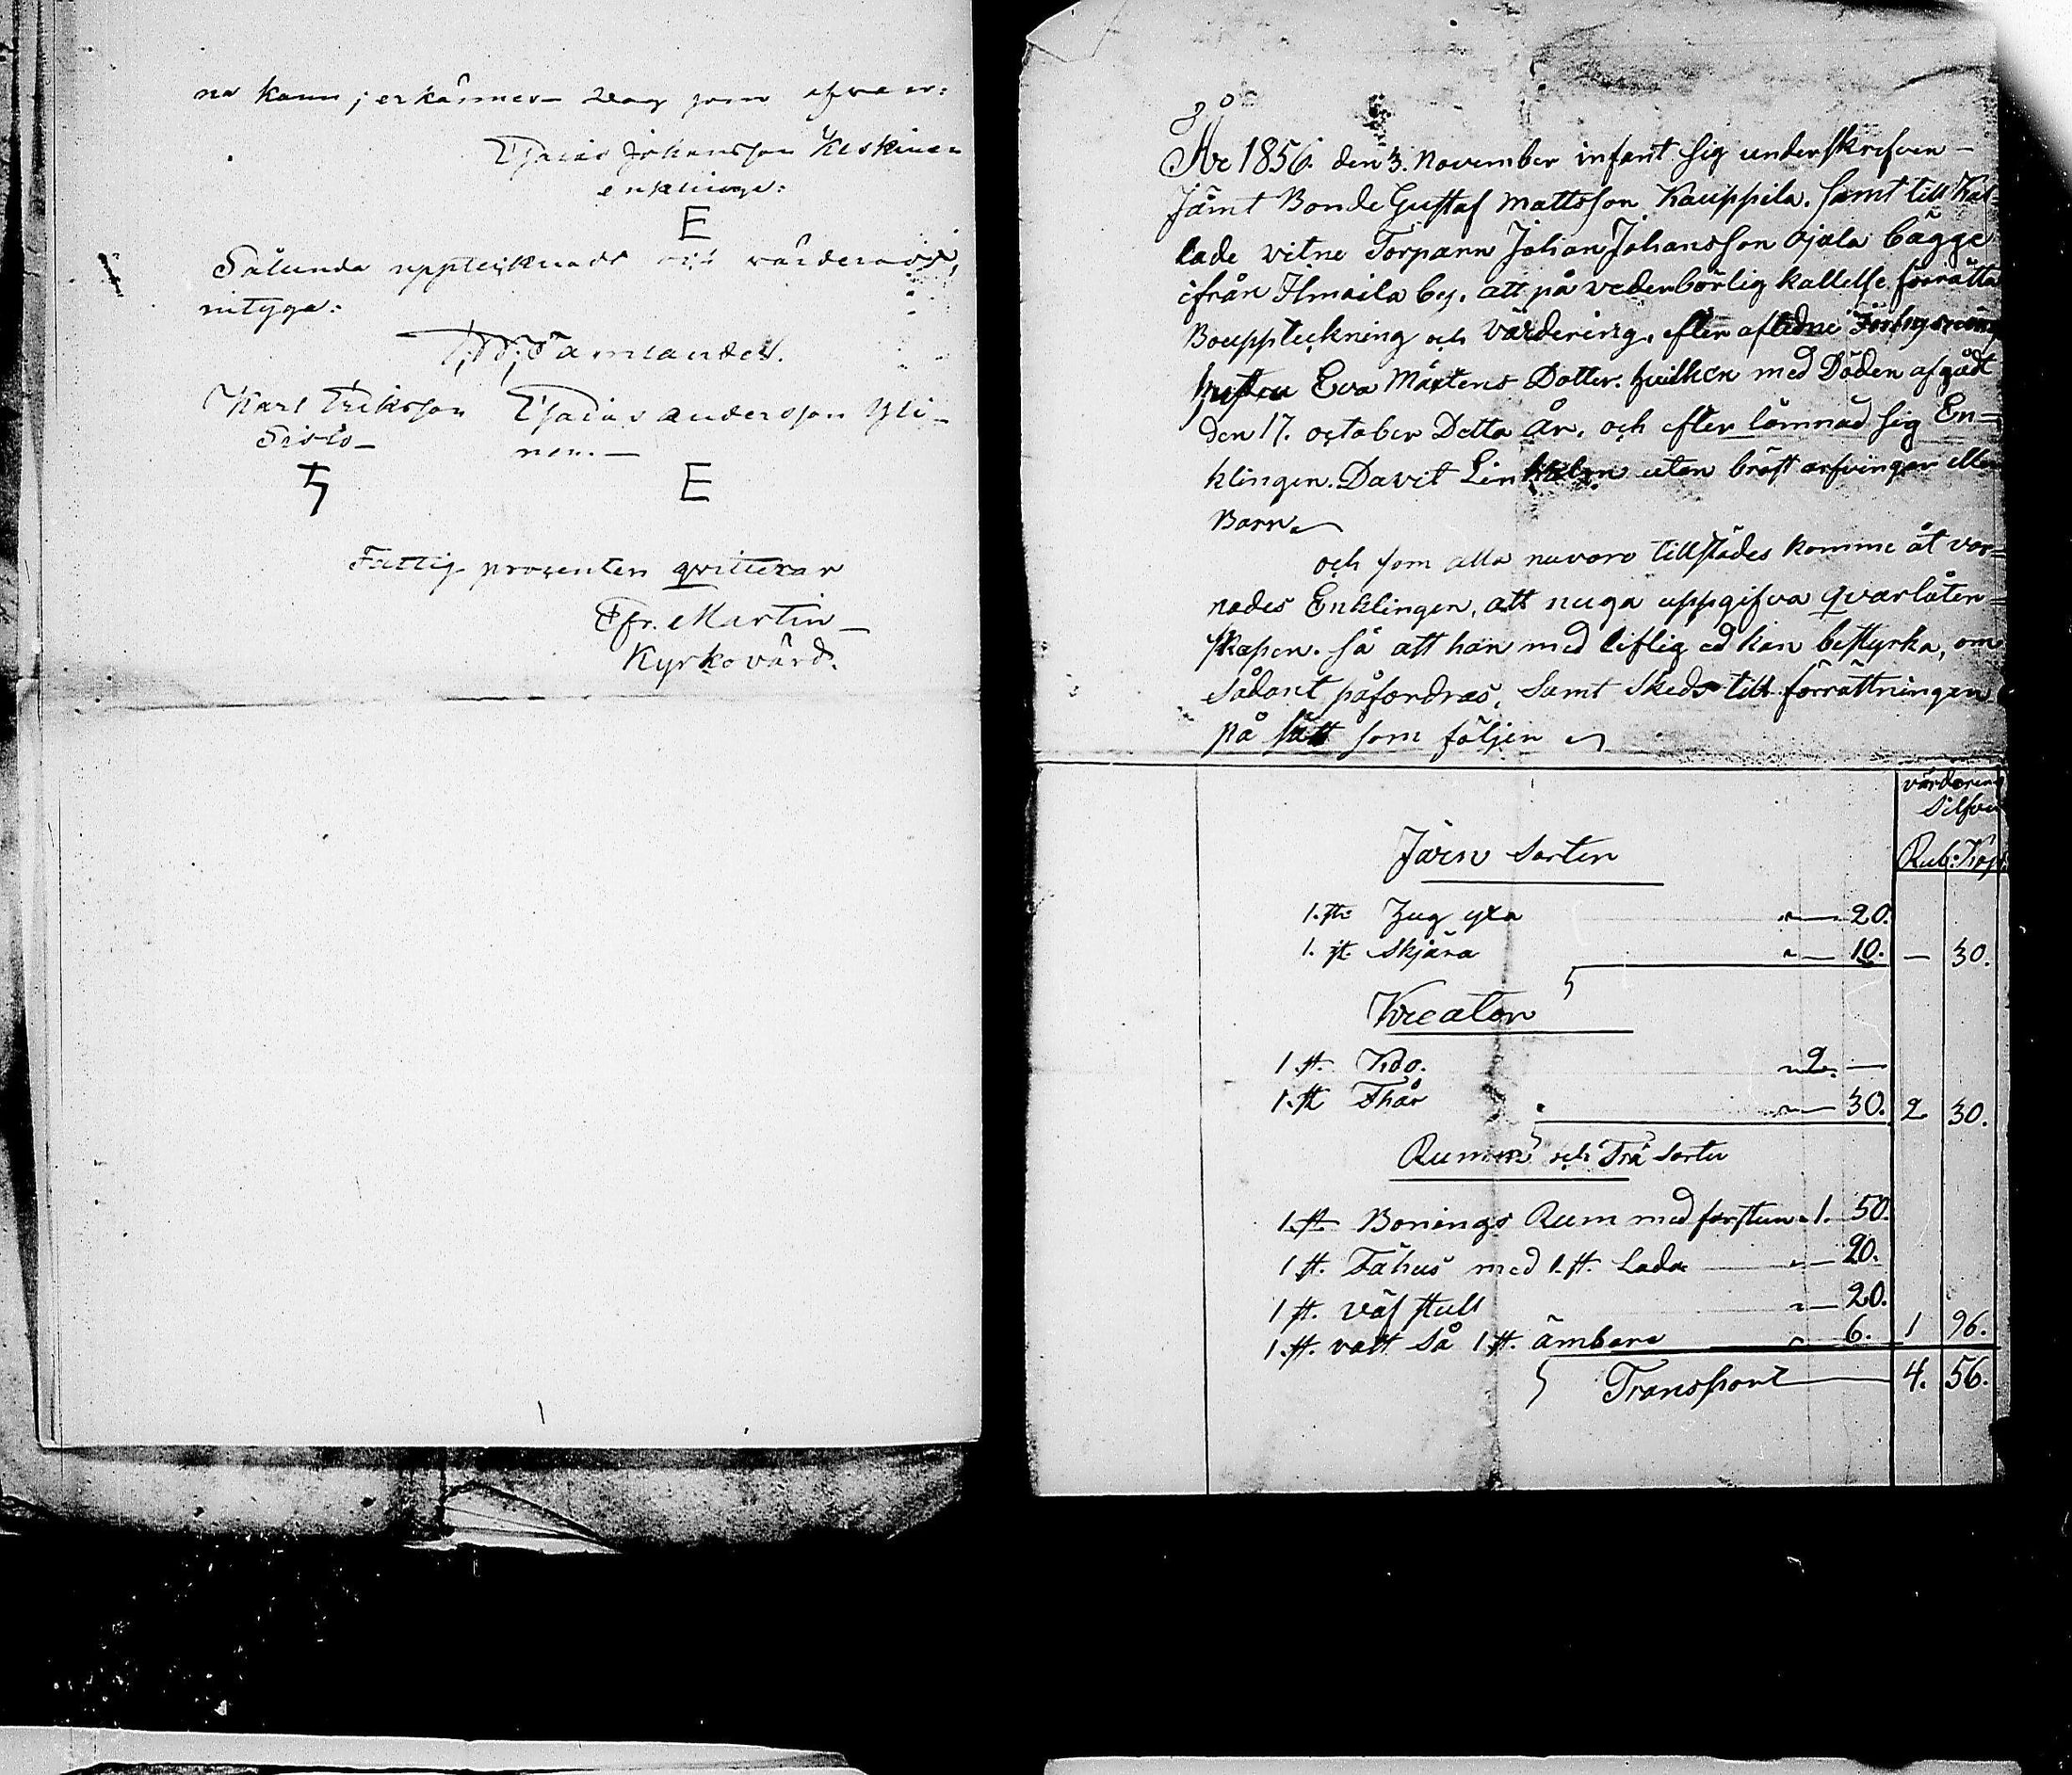 na kann; erkännes Dag som ofvan:
Esaias Johansson Keskinen
enklinge:
E
Sålunda upptecknadt och värderadt,
intyga:
Tamlander.
Karl Eriksson Esaias andersson Yli-
nen.
E
Fattig procenten qvitterar
Efr. Martin
Kyrkovärd.
År 1856. den 3. November infant sig underskrefven
Jämt Bonde Gustaf Mattsson Kauppila. samt till Kal-
lade vitne Torparn Johan Johansson Ojala bägge
ifrån Ilmaila by. att på vederbörlig kallelse förrätta
Bouppteckning och Värdering. efter aflidne
hustru Eva Mårtens Dotter. hvilken med Döden afgådt
den 17. october Detta År. och efter lämnad sig En-
klingen. Davit utan bröst arfvingar eller
Barn.
och som alla nuvoro tillstädes komme åt var-
nades Enklingen, att nuga uppgifva qvarlåten-
skapen. så att han med liflig ed kan bestyrka, om
sådant påfordras, samt skeds till förrättningen
på sätt som följer
värdering
Silfver
Rub: Kop.
Järn sorter
1. st: Hug yxa 20.
1. st. Skjära 10. — 30.
Kreatur
1 st. Ko. 2. —
1. st Fhår 30. 2 30.
Rumm och Trä sorter
1. st. Bonings Rum med forstun 1. 50.
1 st. Fähus med 1. st. Lada 20.
1 st. väf stull 20.
1. st. vatt så 1 st. ämbare 6. 1 96.
Transport 4. 56.